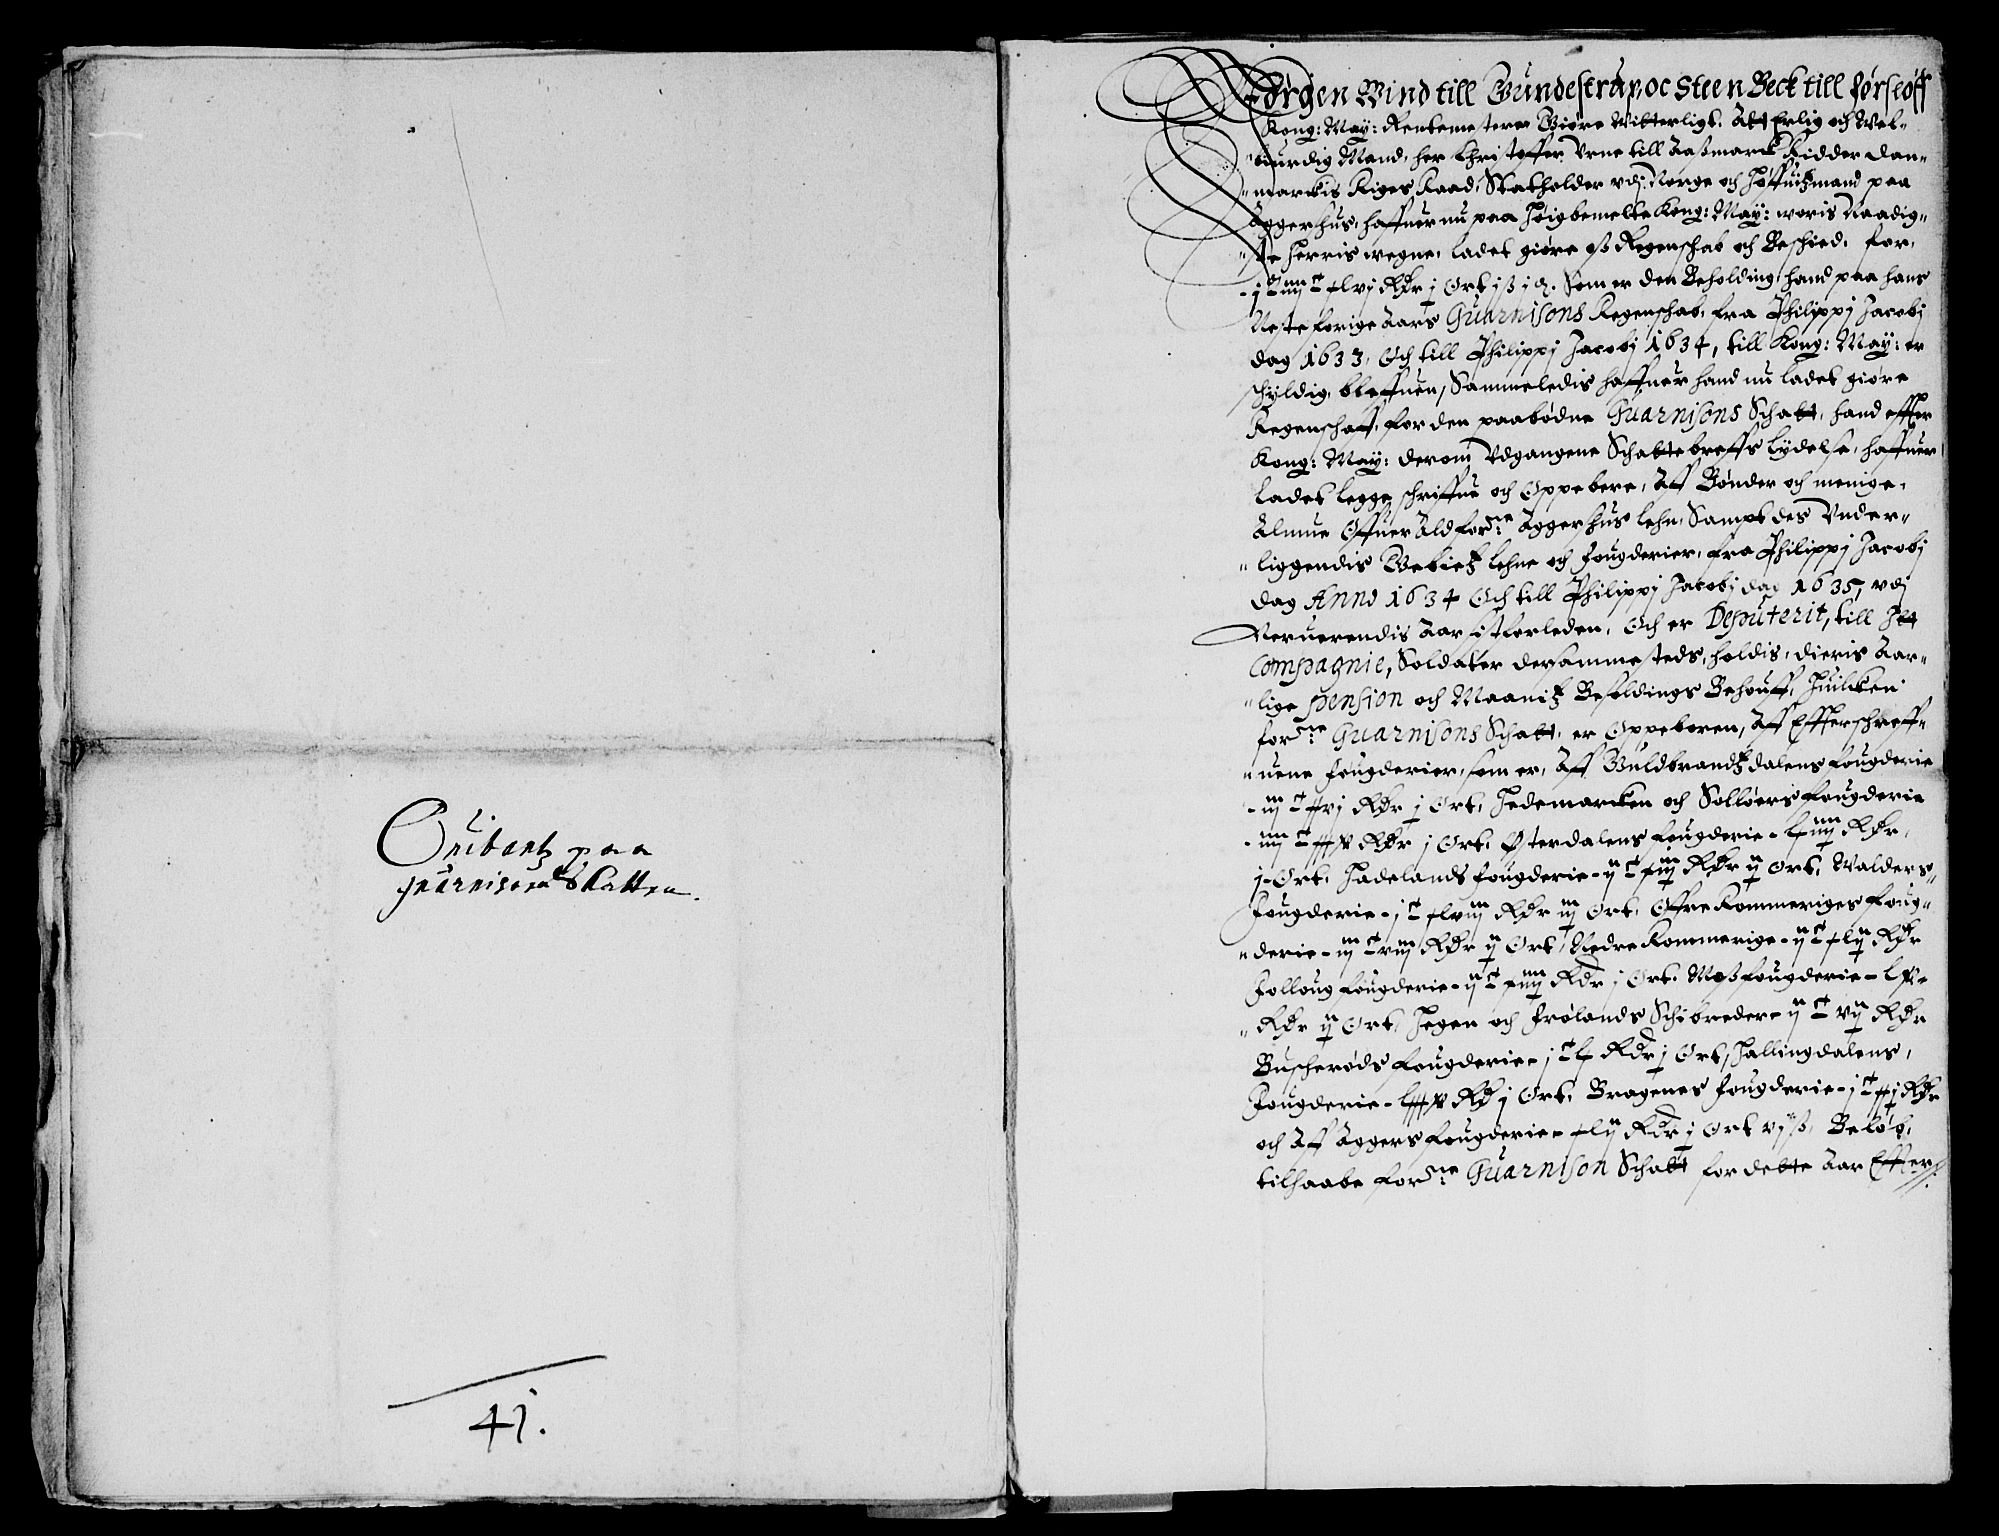 Quitantz paa
guarnison Skatten.
41.
Jørgen Wind till Gundestrup, oc Steen Beck till Førsløff
Kong: May: Rentemestere Giøre Witterligt, Att Erlig och Wel-
burdig Mand, her Christoffer Vrne till Aaßmarck Ridder Dan-
marckis Riges Raad, Statholder vdj Norge och Høffuitzmand paa
Aggershus, haffuer nu paa Høigbemelte Kong: May: woris Naadig-
ste Herris wegne, ladet giøre oß Regenschab och Beschied, for,
j c xlvj Rdr j Ort j ß j Som er den Beholding, hand paa hans
Neste forige Aars Guarnisons Regenschab, fra Philippj Jacobj
dag 1633, Och till Philippj Jacobj 1634, till Kong: May: er
schyldig bleffuen, Sammeledis haffuer hand nu ladet giøre
Regenschaff, for den paabødne Guarnisons Schatt, hand effter
Kong: May: derom Vdgangene Schattebreffs lydelse, haffuer
ladet legge schriffue och Oppebere, Aff Bønder och menige
Almue Offuer Ald forne Aggershus lehn, Sampt des Vnder-
liggendis Gebietz lehne och fougderier, fra Philippj Jacobj
dag Anno 1634 Och till Philippj Jacobj dag 1635, vdj
Neruerendis Aar sistforleden, Och er Deputerit, till Itt
Compagnie, Soldater dersammesteds, holdis, dieris Aar-
lige pension och Maanitz Besoldings Behouff, Huilcken
forne Guarnisons Schatt, er Oppeboren, Aff Effterschreff-
uene fougderier, som er, Aff Guldbrandtzdalens fougderie
iij c xxvj Rdr j Ort, Hedemarcken och Solløers fougderie
iiij c xxxv Rdr j Ort, Østerdalens fougderie - lxiiij Rdr,
j Ort, Hadelands fougderie - ij c xiij Rdr ij Ort, Walders-
fougderie - j c xlviij Rdr iij Ort, Offre Rommeriges foug-
derie - iij c viij Rdr ij Ort, Nedre Rommerige - ij c xlij Rdr
Folloug fougderie - ij c xiiij Rdr j Ort, Moß fougderie - lxv
Rdr ij Ort, Hegen och Frølands Schibreder - ij c vij Rdr
Buscherøds fougderie - j c lx Rdr j Ort, Hallingdalens,
fougderie - lxxxv Rdr j Ort, Bragenes fougderie - j c xxj Rdr
och Aff Aggers fougderie - xlij Rdr j Ort vj ß, Beløb,
tilhaabe forne Guarnison Schatt for dette Aar Effter